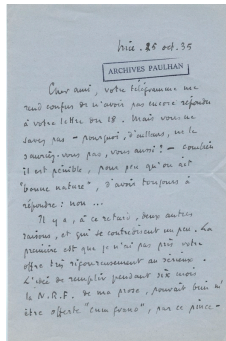 Nice. 25 oct. 35
ARCHIVES PAULHAN
Cher ami, votre télégramme me
rend confus de n'avoir pas encore répondu
à votre lettre du 18. Mais vous ne
savez pas – pourquoi, d'ailleurs, ne le
sauriez-vous pas, vous aussi ? – combien
il est pénible, pour peu qu'on ait
"bonne nature", d'avoir toujours à
répondre : non ...
Il y a, à ce retard, deux autres
raisons, et qui se contredisent un peu. La
première est que je n'ai pas pris votre
offre très rigoureusement au sérieux.
L'idée de remplir pendant six mois
la N.R.F. de ma prose, pouvait bien m'
être offerte "cum grano", par ce prince-